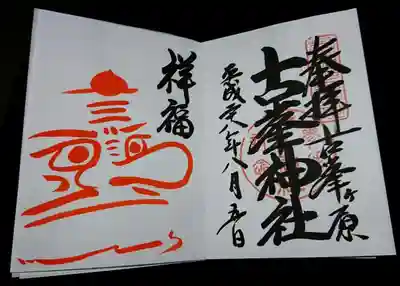 奉拝 古峯ヶ原
古峯神社
平成二十八年八月五日
祥福